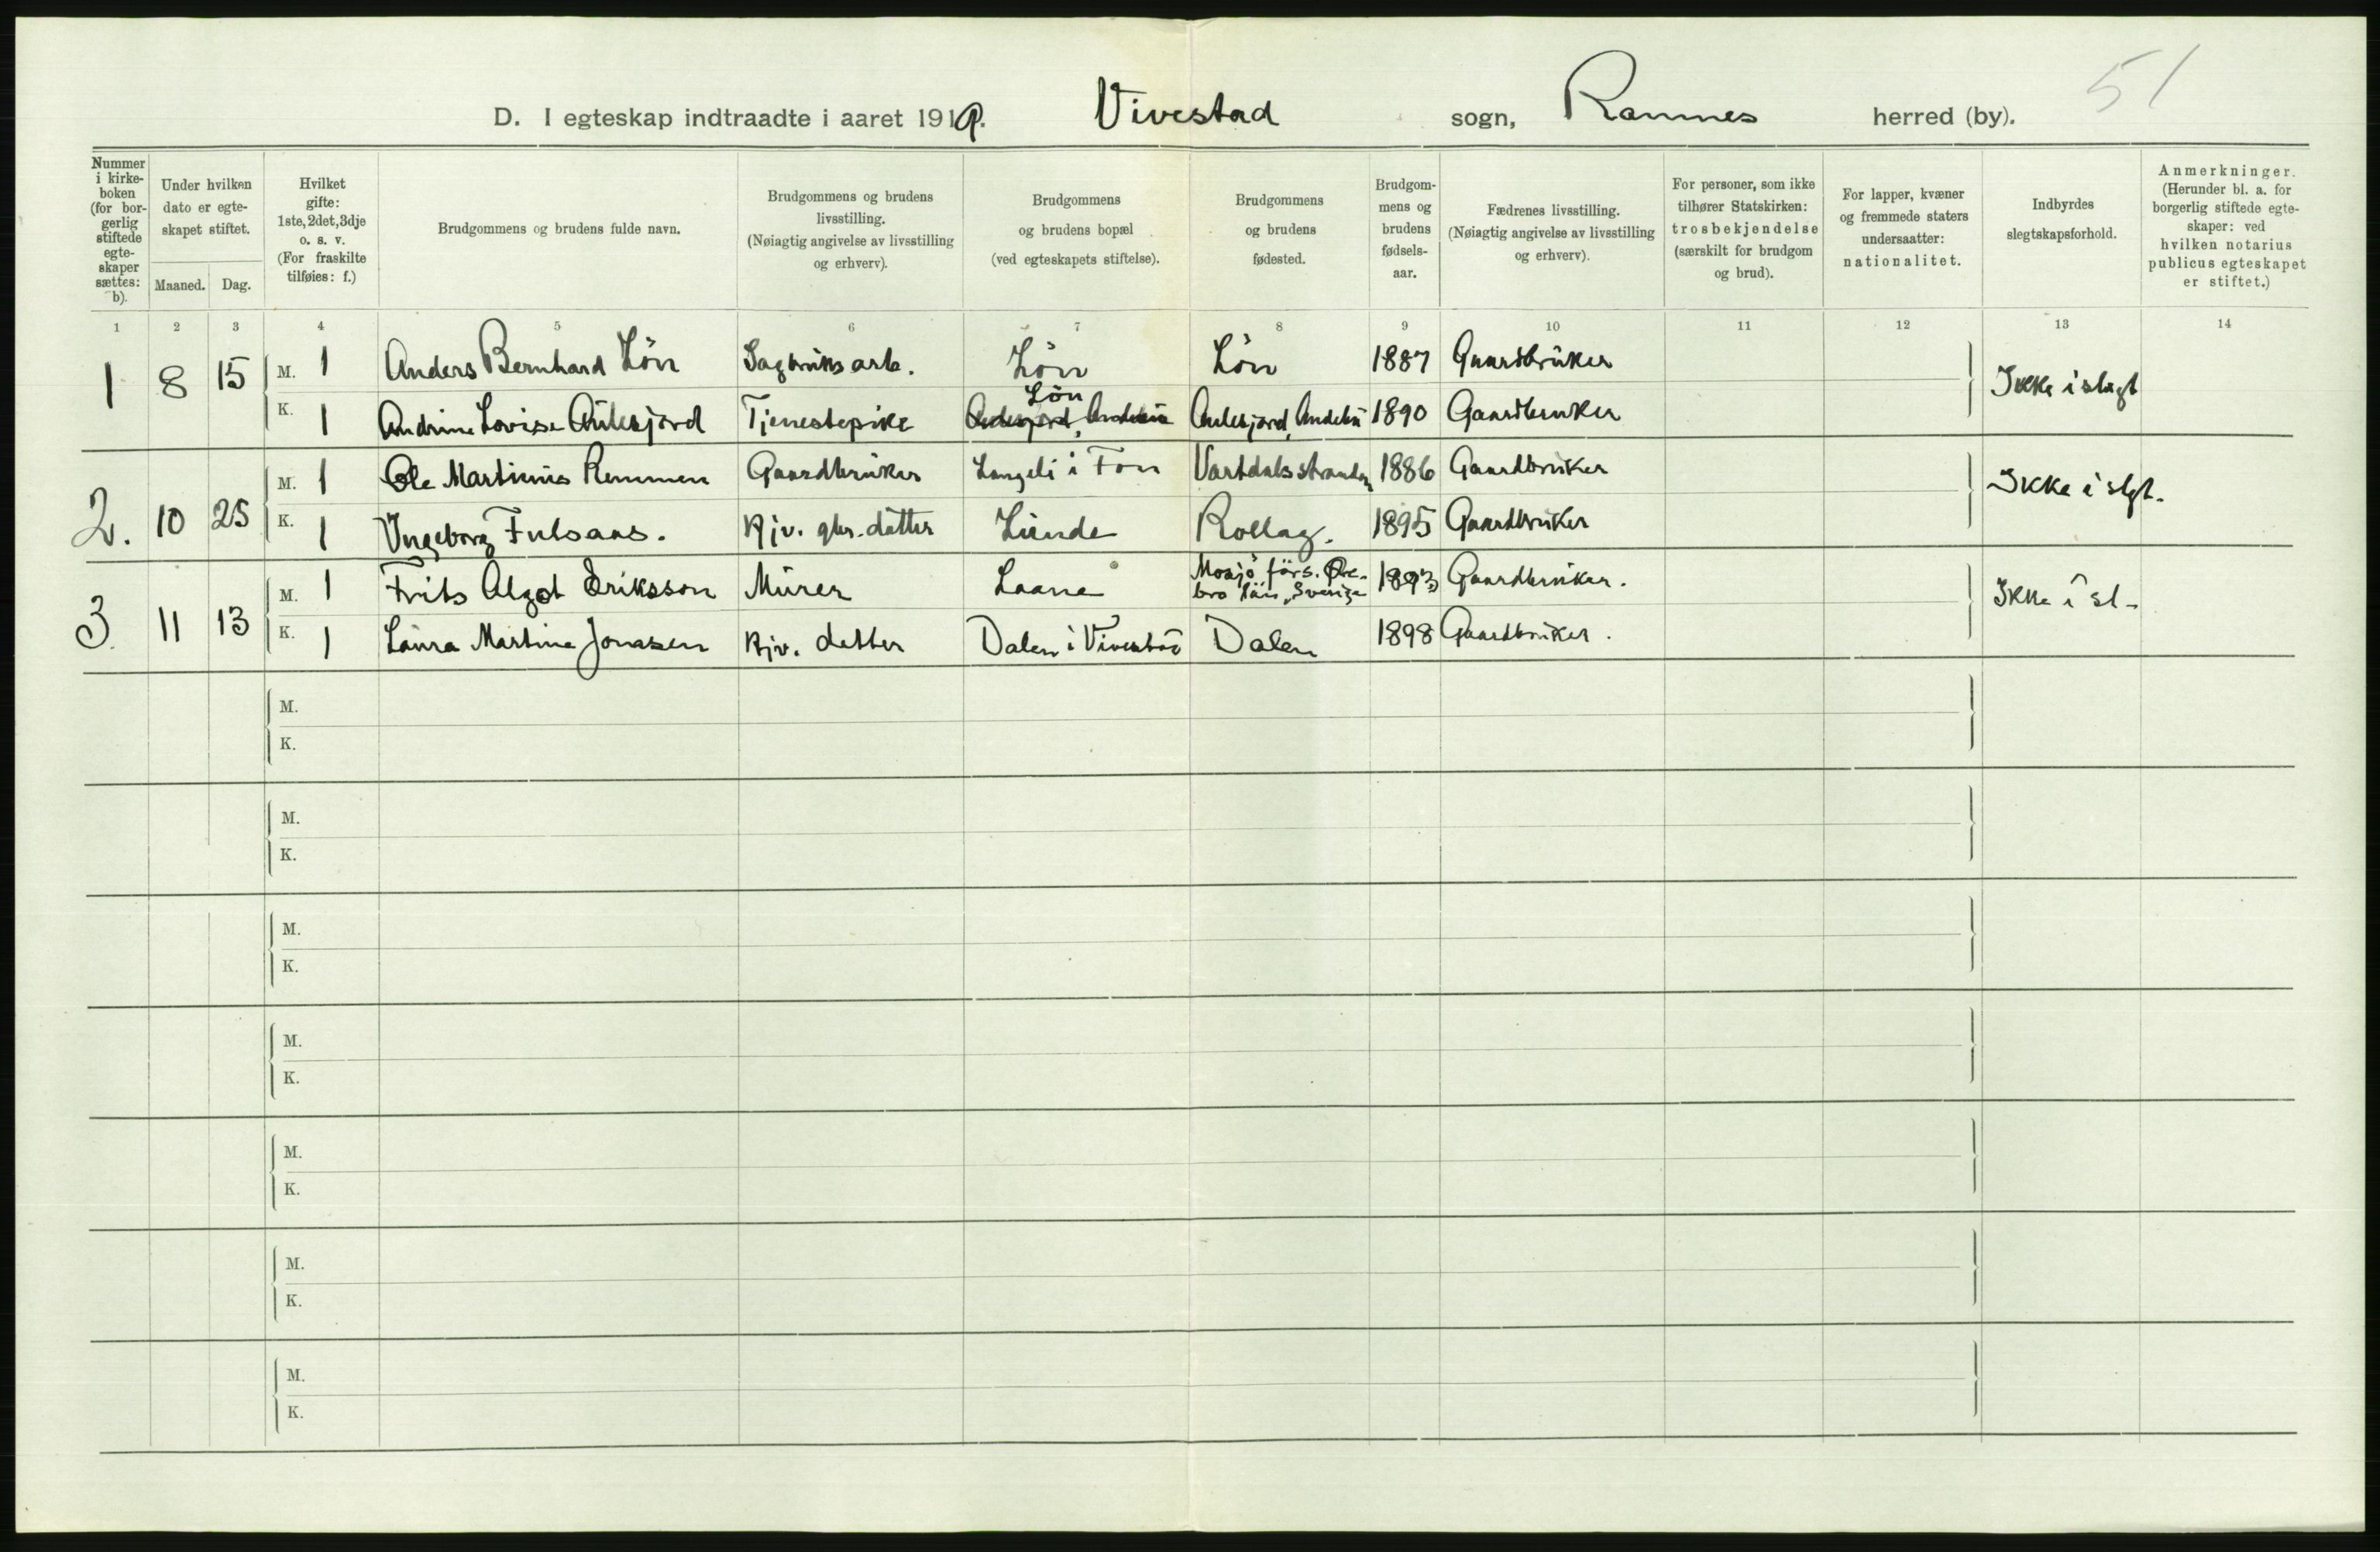 51
D. I egteskap indtraadte i aaret 1919. Vivestad sogn, Ramnes herred (by).
Nummer i kirke-boken (for bor-gerlig stiftede egte-skaper sættes: b).
Under hvilken dato er egte-skapet stiftet.
Maaned. Dag.
Hvilket gifte: 1ste, 2det, 3dje o. s. v. (For fraskilte tilføies: f.)
Brudgommens og brudens fulde navn.
Brudgommens og brudens livsstilling. (Nøiagtig angivelse av livsstilling og erhverv).
Brudgommens og brudens bopæl (ved egteskapets stiftelse).
Brudgommens og brudens fødested.
Brudgom-mens og brudens fødsels-aar.
Fædrenes livsstilling. (Nøiagtig angivelse av livsstilling og erhverv).
For personer, som ikke tilhører Statskirken: trosbekjendelse (særskilt for brudgom og brud).
For lapper, kvæner og fremmede staters undersaatter: nationalitet.
Indbyrdes slegtskapsforhold.
Anmerkninger. (Herunder bl. a. for borgerlig stiftede egte-skaper: ved hvilken notarius publicus egteskapet er stiftet.)
1 2 3 4 5 6 7 8 9 10 11 12 13 14
1 8 15 M. 1 Anders Bernhard Lön Sagbruksarb. Lön Lön 1887 Gaardbrüker Ikke i slegt
K. 1 Andrine Lovise Aulesjord Tjenestepike Lön Aulesjord, Andebü 1890 Gaardbruker
2. 10 25 M. 1 Ole Martinius Remmen Gaardbrüker Langeli i Fon Vartdalsstranden 1886 Gaardbruker Ikke i slgt.
K. 1 Ingeborg Fulsaas. Hjv. gbr. datter Lünde Rollag. 1895 Gaardbruker
3 11 13 M. 1 Frits Algot Eriksson Mürer Laane Mosjö förs. Öre-bro län, Sverige 1893 Gaardbruker. Ikke i sl-
K. 1 Laura Martine Jonassen Hjv. datter Dalen i Vivestad Dalen 1898 Gaardbruker.
M.
K.
M.
K.
M.
K.
M.
K.
M.
K.
M.
K.
M.
K.